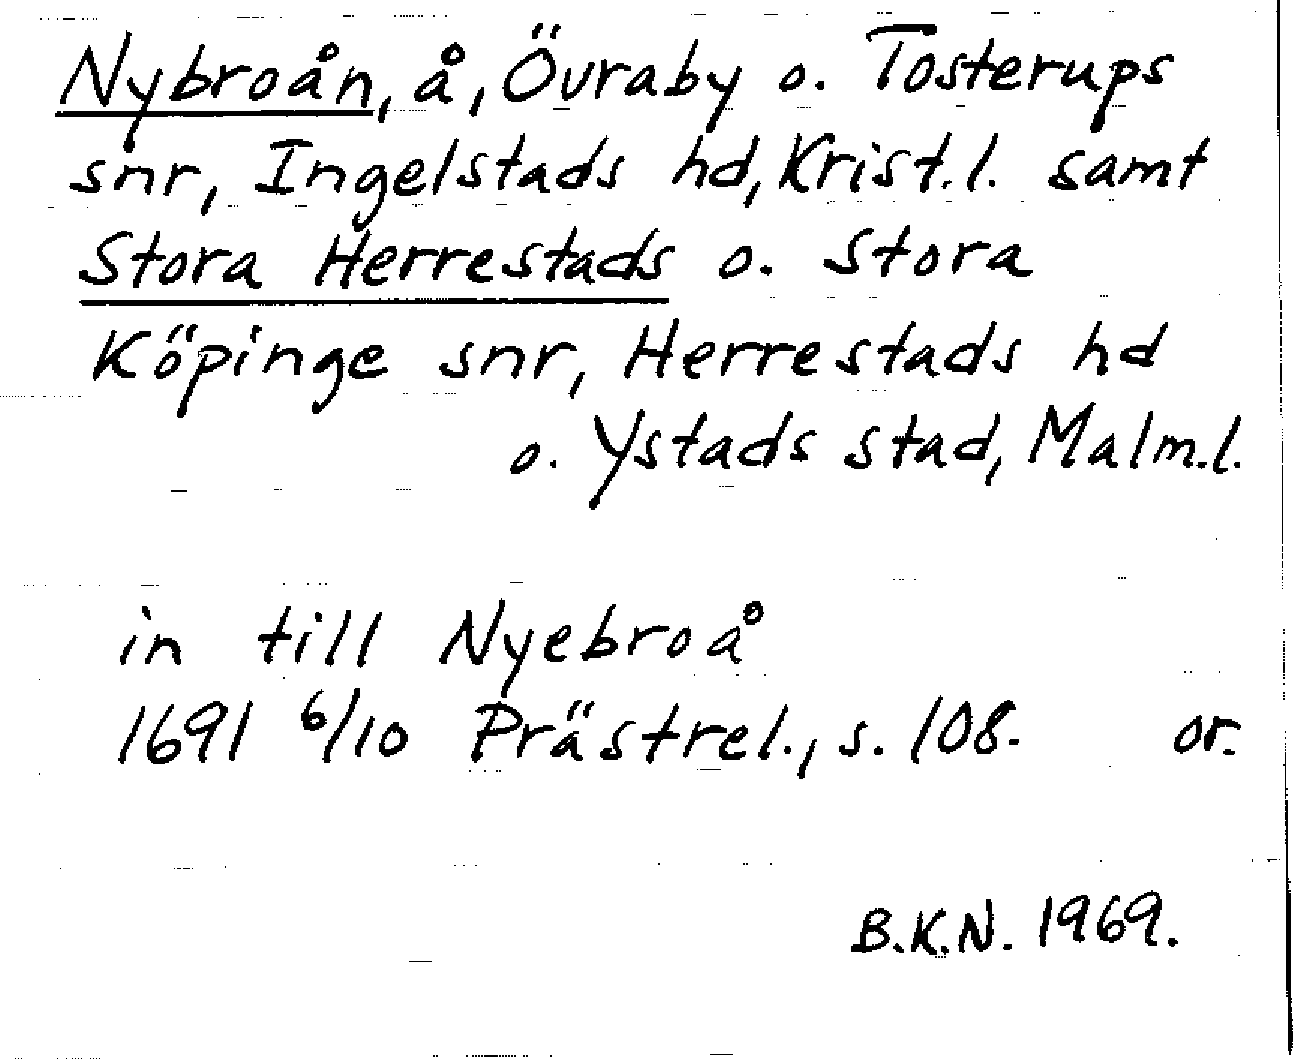 Nybroån, å, Övraby o. Tosterups
snr, Ingelstads hd, Krist.l. samt
Stora Herrestads o. Stora
Köpinge snr, Herrestads hd
o. Ystads stad, Malm.l.
in till Nyebroå
1691 6/10 Prästrel., s. 108. or.
B.K.N. 1969.